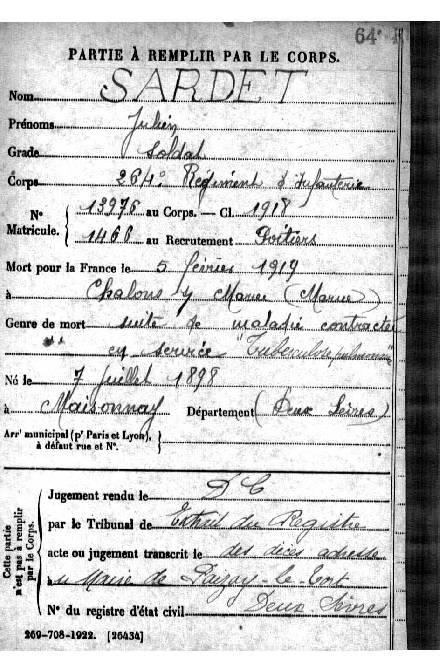 64
PARTIE À REMPLIR PAR LE CORPS.
Nom SARDET
Prénoms Julien
Grade Soldat
Corps 264e Régiment d'Infanterie
N° Matricule. { 13976 au Corps. — Cl. 1918
1466 au Recrutement Poitiers
Mort pour la France le 5 février 1919
à Chalons s/ Marne (Marne)
Genre de mort suite de maladie contractée
en service "Tuberculose pulmonaire"
Né le 7 Juillet 1898
à Maisonnay Département (Deux Sèvres)
Arrt municipal (pr Paris et Lyon), à défaut rue et N°.
Cette partie n'est pas à remplir par le Corps.
Jugement rendu le D C
par le Tribunal de Extrait du Registre
acte ou jugement transcrit le des décès adressé
au Maire de Paizay-le-Tort
N° du registre d'état civil Deux Sèvres
269-708-1922. [26434]